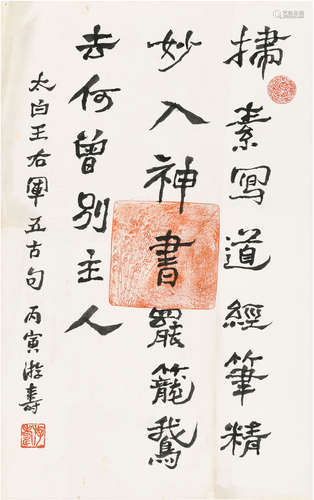 掃素寫道經筆精
妙入神書罷籠鵞
去何曾別主人
太白王右軍五古句 丙寅游壽